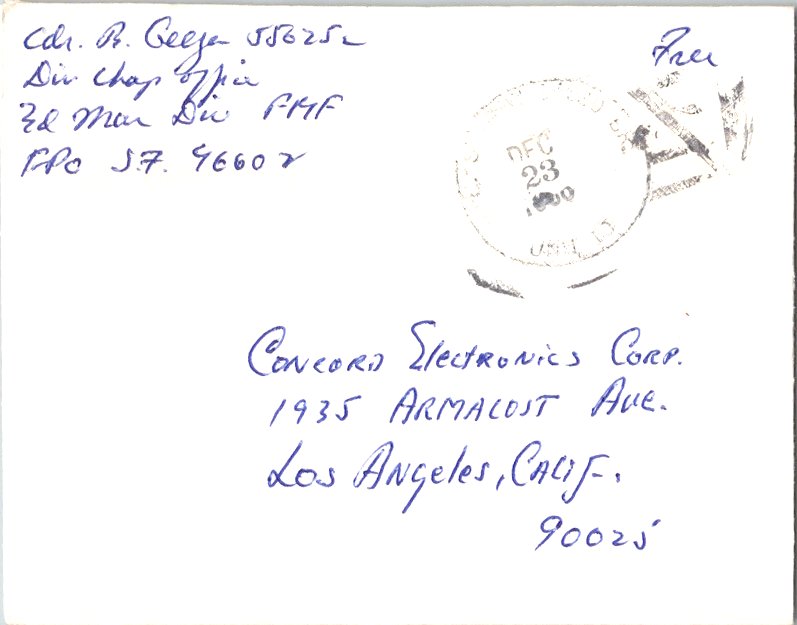 Cdr. R. 556252
Div Chap Office
3d Mar Div FMF
FPO S.F. 96602
Free
DEC
23
UNIT
Concord Electronics Corp.
1935 Armacost Ave.
Los Angeles, Calif.
90025